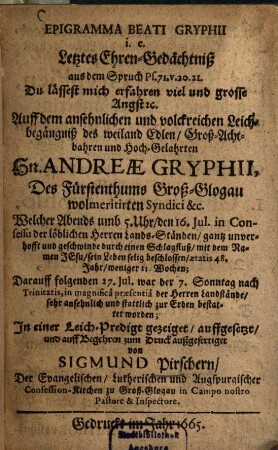 EPIGRAMMA BEATI GRYPHII
i. e.
Letztes Ehren-Gedächtniß
aus dem Spruch Ps. 71. v. 20. 21.
Du lässest mich erfahren viel und grosse
Angst ꝛc.
Auff dem ansehnlichen und volckreichen Leich-
begängniß des weiland Edlen/ Groß-Acht-
bahren und Hoch-Gelahrten
Hn. ANDREÆ GRYPHII,
Des Fürstenthums Groß-Glogau
wolmeritirten Syndici &c.
Welcher Abends umb 5. Uhr/ den 16. Jul. in Con-
sessu der löblichen Herren Lands-Ständen/ gantz unver-
hofft und geschwinde durch einen Schlagfluß/ mit dem Na-
men JEsu/ sein Leben selig beschlossen/ ætatis 48.
Jahr/ weniger 11. Wochen;
Darauff folgenden 27. Jul. war der 7. Sonntag nach
Trinitatis, in magnificâ præsentiâ der Herren Landstände/
sehr ansehnlich und stattlich zur Erden bestat-
tet worden;
In einer Leich-Predigt gezeiget/ auffgesetzt/
und auff Begehren zum Druck außgefertiget
von
SIGMUND Pirschern/
Der Evangelischen/ Lutherischen und Augspurgischer
Confession-Kirchen zu Groß-Glogau in Campo nostro
Pastore & Inspectore.
Gedruckt im Jahr 1665.